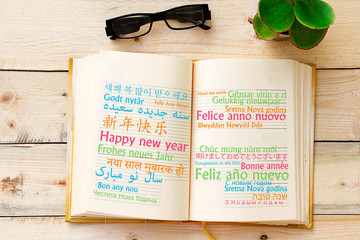 새해 복 많이 받으세요
Godt nytår
Feliz Ano Novo
سنه جدیده سعیده
新年快乐
Happy new year
Frohes neues Jahr
नया साल मुबारक हो
سال نو مبارک
Bon any nou
Честита Нова година
Hauoli
Gëzuar vitin e ri
Gelukkig nieuwjaar
Sretna Nova godina
Felice anno nuovo
Blwyddyn Newydd Dda
Chúc mừng năm mới
明けましておめでとうございます
Bonne année
Feliz año nuevo
С новым годом
Sretna Nova godina
שנה טובה